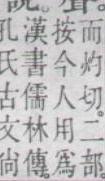 而灼切二部
按今人用爲
漢書儒林傳
孔氏古文尙